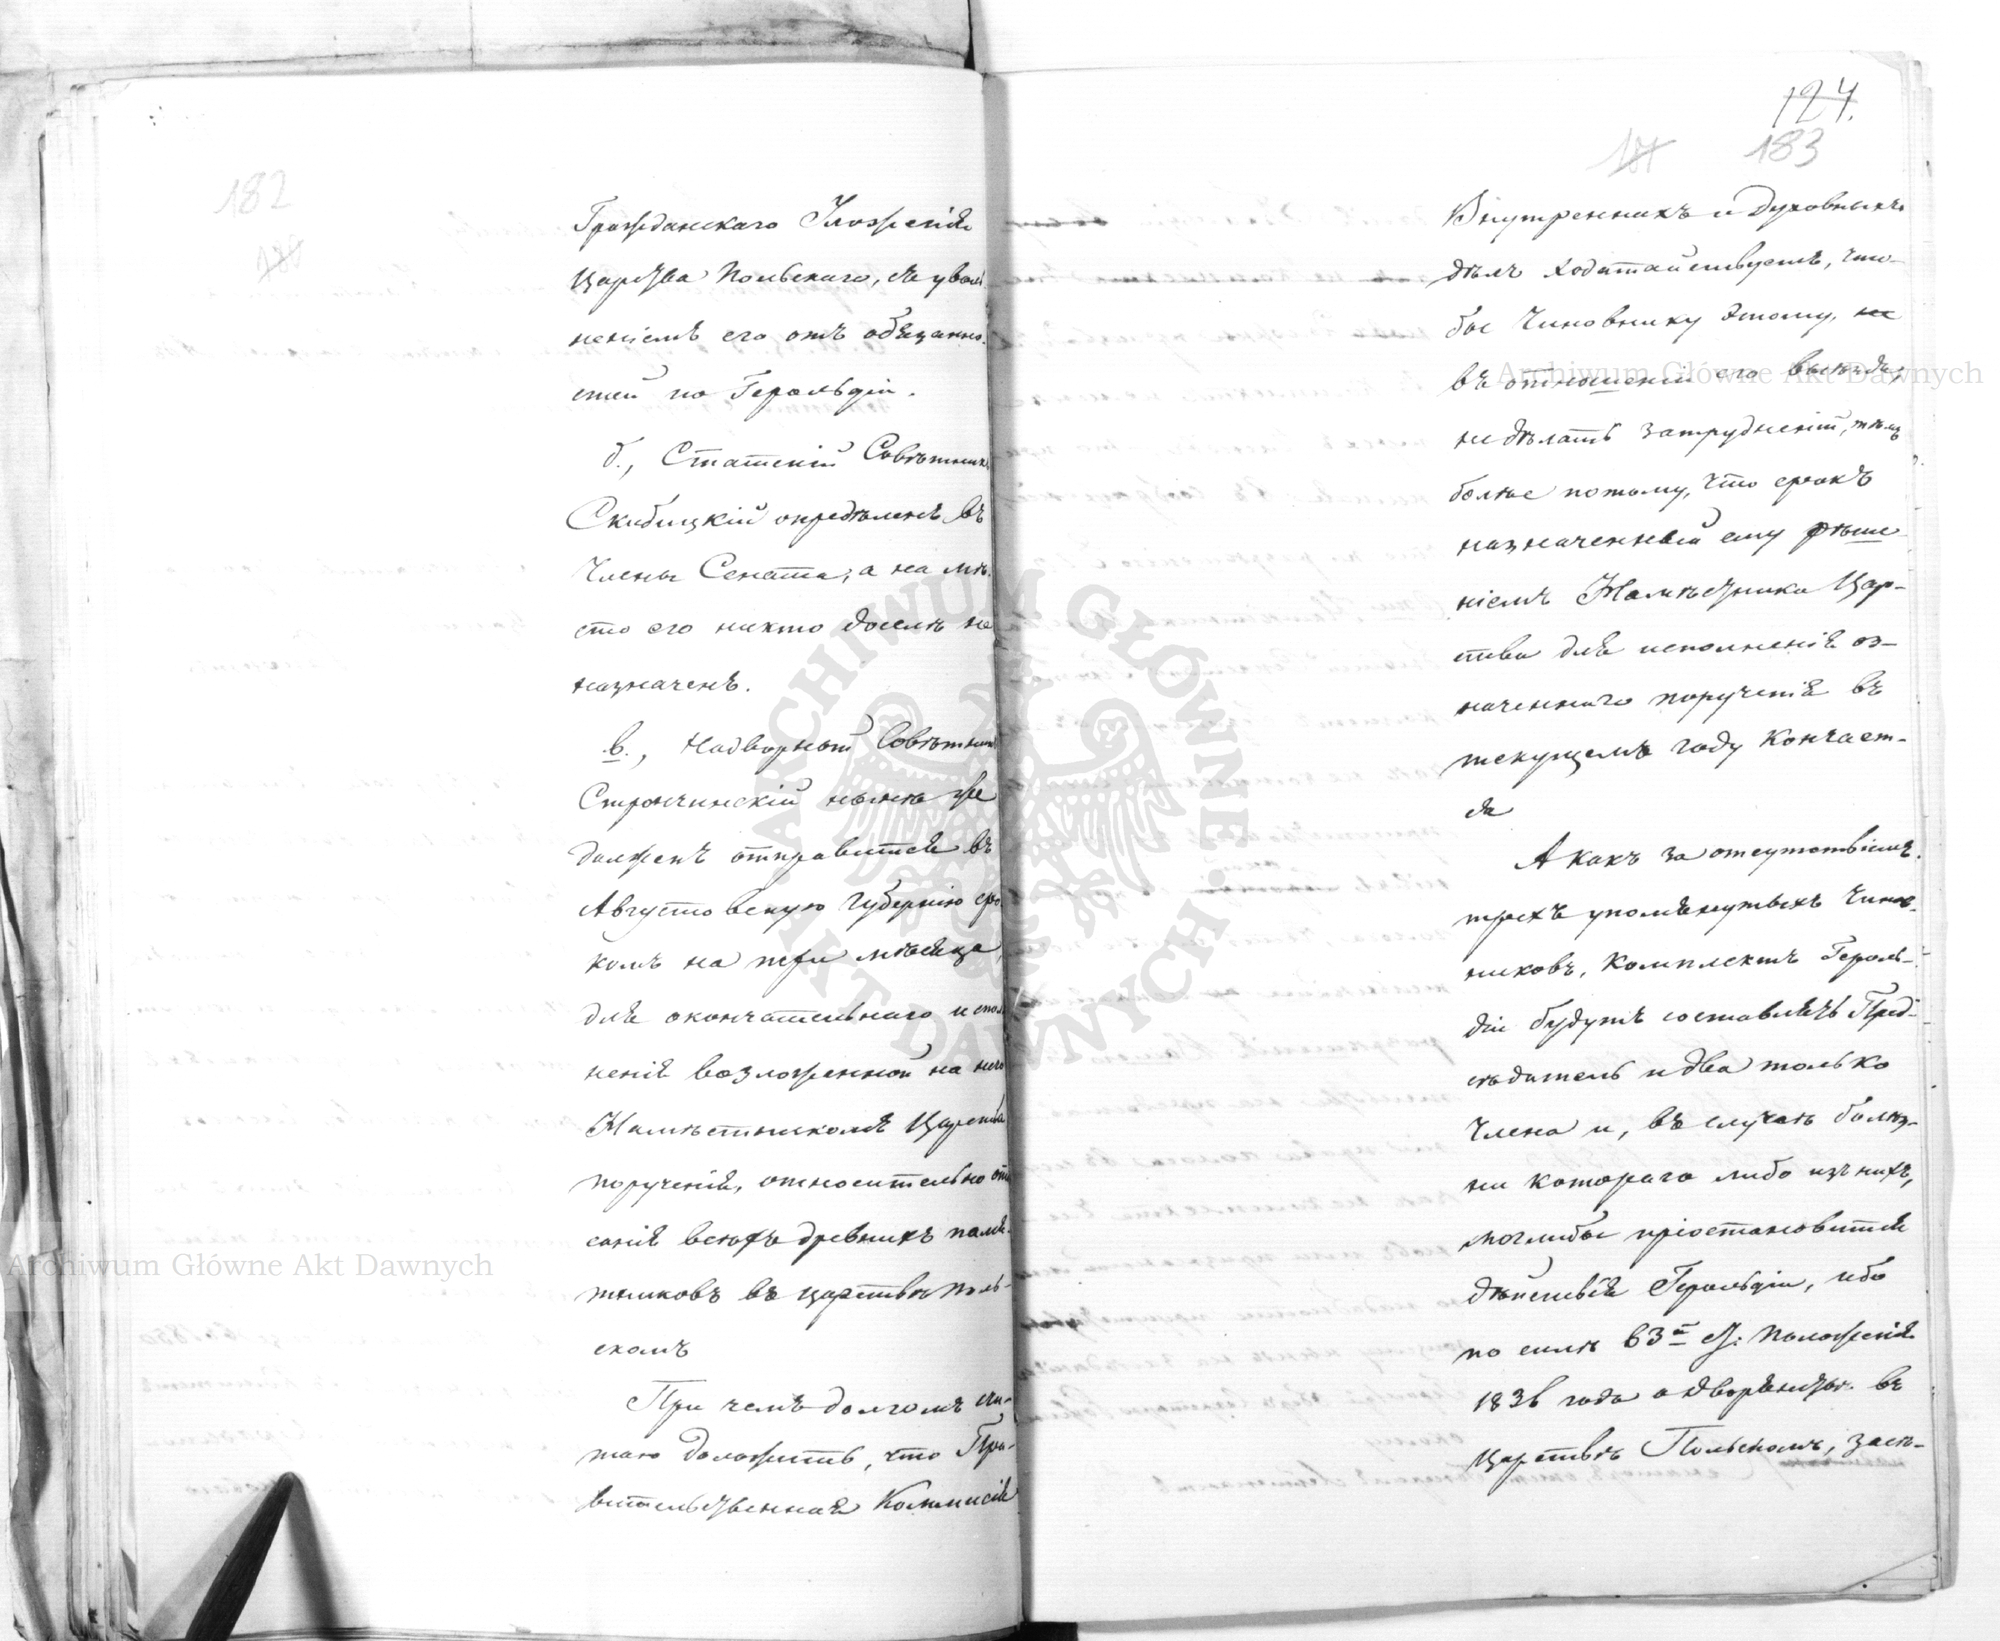 182
Гражданскаго Уложенія
Царства Польскаго, съ уволь
неніемъ его отъ обязанно-
стей по Герольдіи.
б., Статскій Совѣтникъ
Скибицкій опредѣленъ въ
Члены Сената, а на мѣ-
сто его никто доселѣ не
назначенъ.
в., Надворный Совѣтникъ
Стрончинскій нынѣ же
долженъ отправиться въ
Августовскую Губернію сро
комъ на три мѣсяца,
для окончательнаго испол
ненія возложеннаго на него
Намѣстникомъ Царства
порученія, относительно опи
санія всѣхъ древнихъ памя-
тниковъ въ Царствѣ Поль-
скомъ
При чемъ долгомъ счи-
таю доложить, что Пра-
вительственная Коммисія
124.
183
Внутреннихъ и Духовныхъ
дѣлъ ходатайствуетъ, что-
бы Чиновнику этому,
въ отношеніи его выѣзда,
не дѣлать затрудненій, тѣмъ
болѣе потому, что срокъ
назначенный ему рѣше
ніемъ Намѣстника Цар-
ства для исполненія оз-
наченнаго порученія въ
текущемъ году кончает-
ся
А какъ за отсутствіемъ
трехъ упомянутыхъ Чинов-
никовъ, комплектъ Героль-
діи будутъ составлять Пред-
сѣдатель и два только
Члена и, въ случаѣ болѣз-
ни котораго либо изъ нихъ,
моглибы пріостановиться
дѣйствія Герольдіи, ибо
по силѣ 63й ст: Положенія
1836 года о Дворянствѣ въ
Царствѣ Польскомъ, засѣ-
Archiwum Główne Akt Dawnych
Archiwum Główne Akt Dawnych
ARCHIWUM GŁÓWNE AKT DAWNYCH